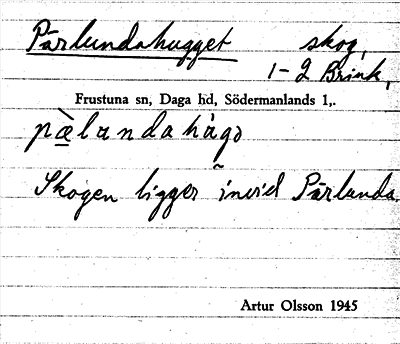 Pärlundahugget skog,
1-2 Brink,
Frustuna sn, Daga hd, Södermanlands l,.
pæ̀landahàgə
Skogen ligger invid Pärlunda.
Artur Olsson 1945